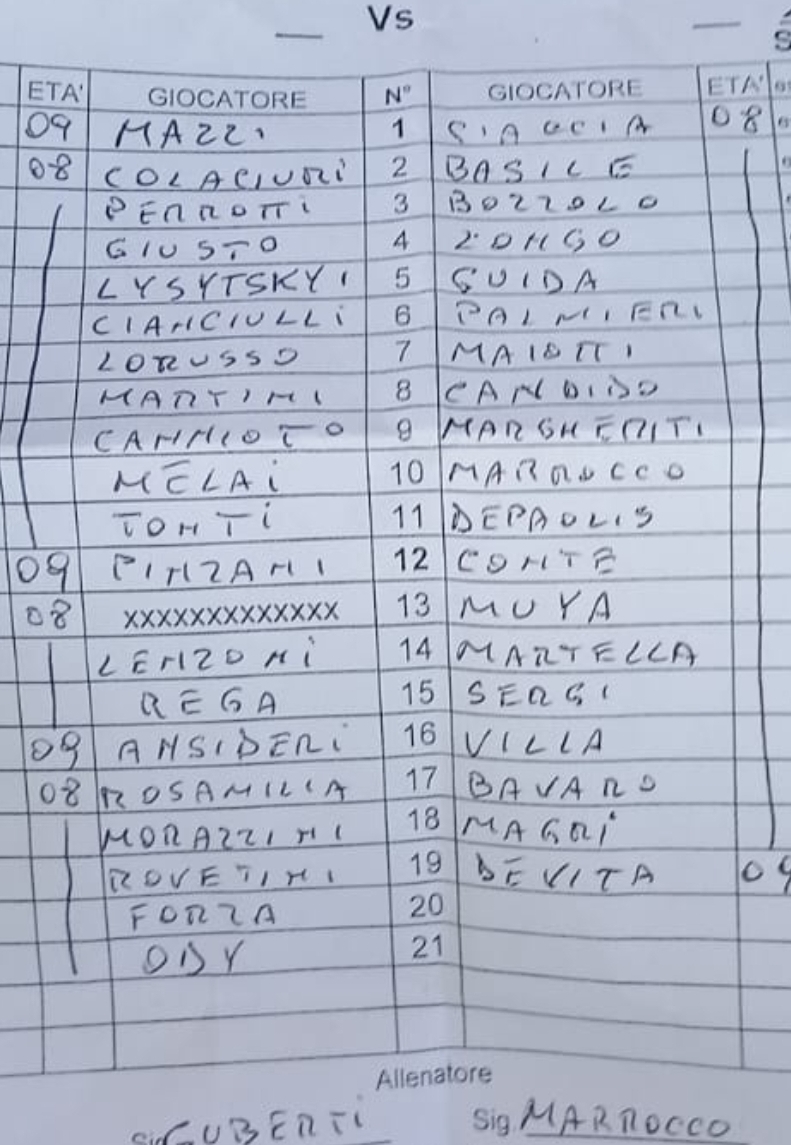 Vs
ETA' GIOCATORE N° GIOCATORE ETA'
09 MAZZI 1 SIACCIA 08
08 COLACIURI 2 BASILE
PERROTTI 3 BOZZOLO
GIUSTO 4 ZONGO
LYSYTSKYI 5 GUIDA
CIANCIULLI 6 PALMIERI
LORUSSO 7 MAIOTTI
MARTINI 8 CANDIDO
CANNIOTO 9 MARGHERITI
MELAI 10 MARROCCO
TONTI 11 DEPAOLIS
09 PINZANI 12 CONTE
08 XXXXXXXXXXXXX 13 MUYA
LENZONI 14 MARTELLA
REGA 15 SERGI
09 ANSIDERI 16 VILLA
08 ROSAMILIA 17 BAVARO
MORAZZINI 18 MAGRI
ROVETINI 19 DEVITA 09
FORZA 20
ODY 21
Allenatore
Sig GUBERTI Sig. MARROCCO